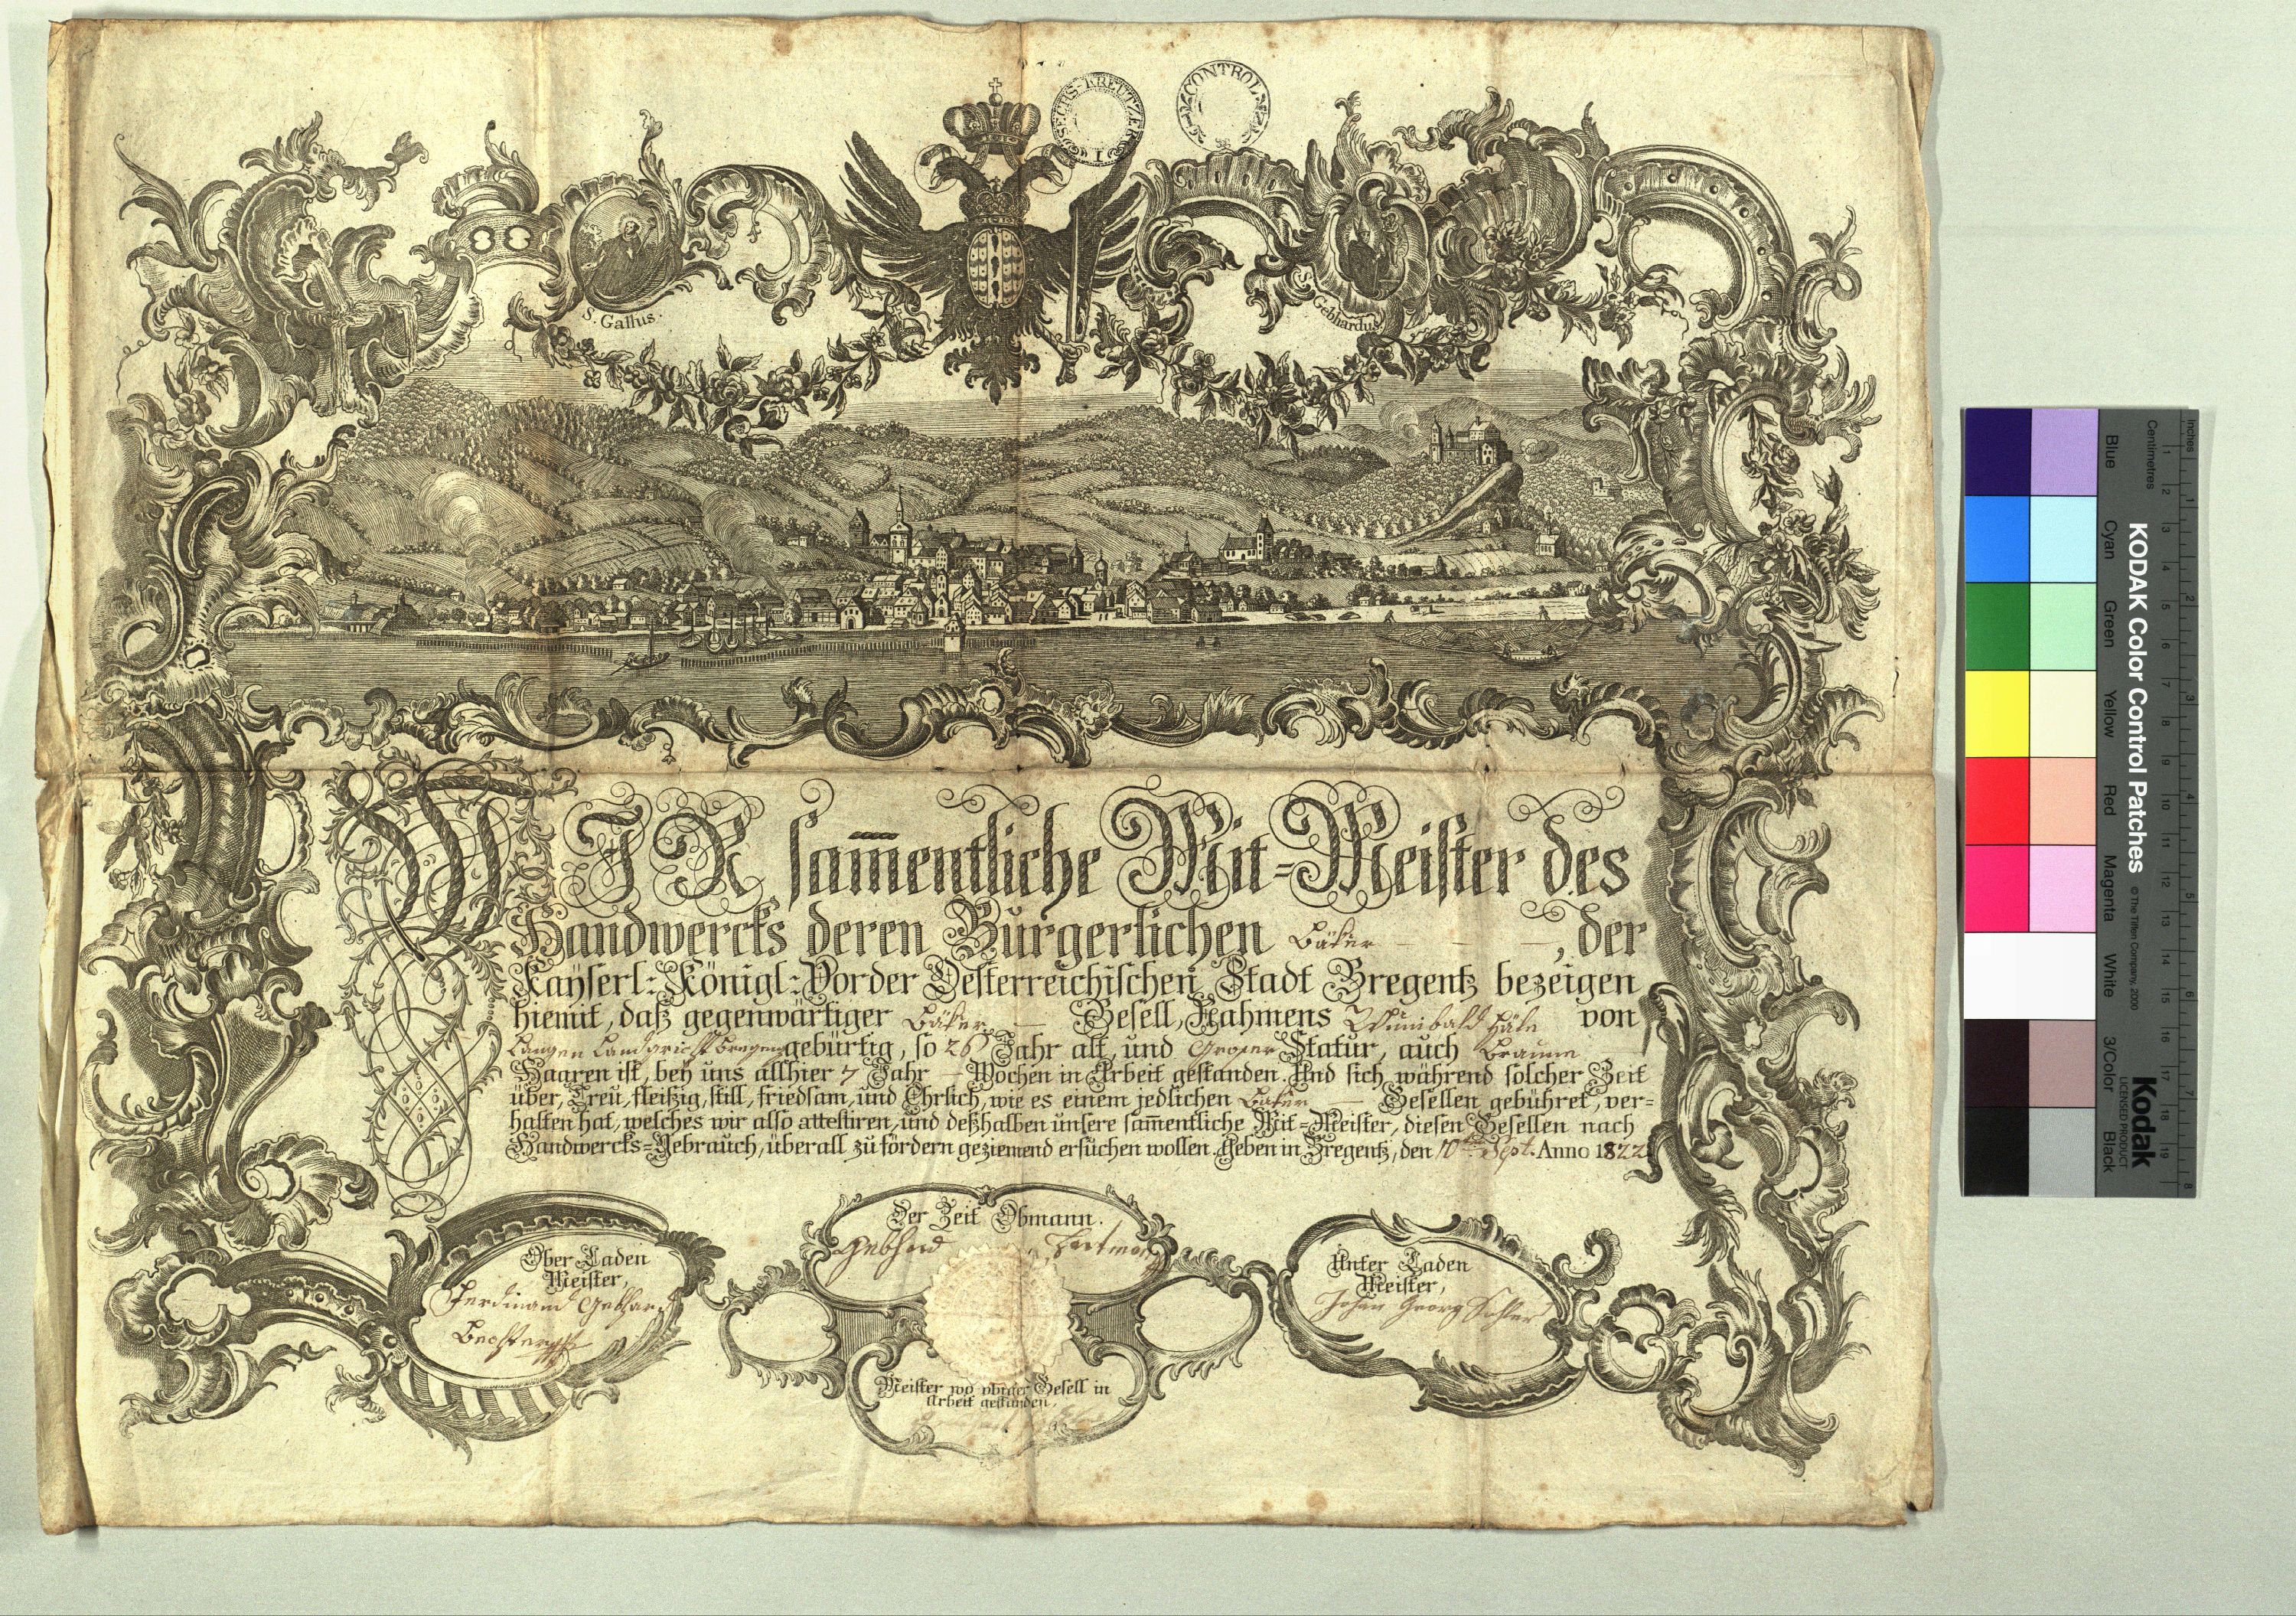 SECHS-KREUTZER
I
CONTROL
S. Gallus.
S. Gebhardus
WIR sam̅entliche Mit=Meister des
Handwercks deren Bürgerlichen Bäker, der
Kaÿserl: Königl: Vorder Oesterreichischen Stadt Bregentz bezeigen
hiemit, daß gegenwärtiger Bäker Gesell, Nahmens Wunibald von
Langen Landgricht Bregenz gebürtig, so 26 Jahr alt, und Groser Statur, auch Braune
Haaren ist, beÿ uns allhier 7 Jahr — Wochen in Arbeit gestanden. Und sich während solcher Zeit
über, Treu, fleißig, still, friedsam, und Ehrlich, wie es einem jedlichen Bäker — Gesellen gebühret, ver=
halten hat, welches wir also attestiren, und deßhalben unsere sam̅entliche Mit=Meister, diesen Gesellen nach
Handwercks=Gebrauch, überall zu fördern geziemend ersuchen wollen. Geben in Bregentz, den 10ten Sept. Anno 1822
Der Zeit Obmann.
Gebhard
Ober Laden
Meister,
Ferdinand Gebhard
Unter Laden
Meister,
Johan Georg
Meister wo obiger Gesell in
Arbeit gestanden.
Inches
Centimetres
1 2 3 4 5 6 7 8 9 10 11 12 13 14 15 16 17 18 19
1 2 3 4 5 6 7 8
KODAK Color Control Patches © The Tiffen Company, 2000
Kodak
LICENSED PRODUCT
Blue
Cyan
Green
Yellow
Red
Magenta
White
3/Color
Black